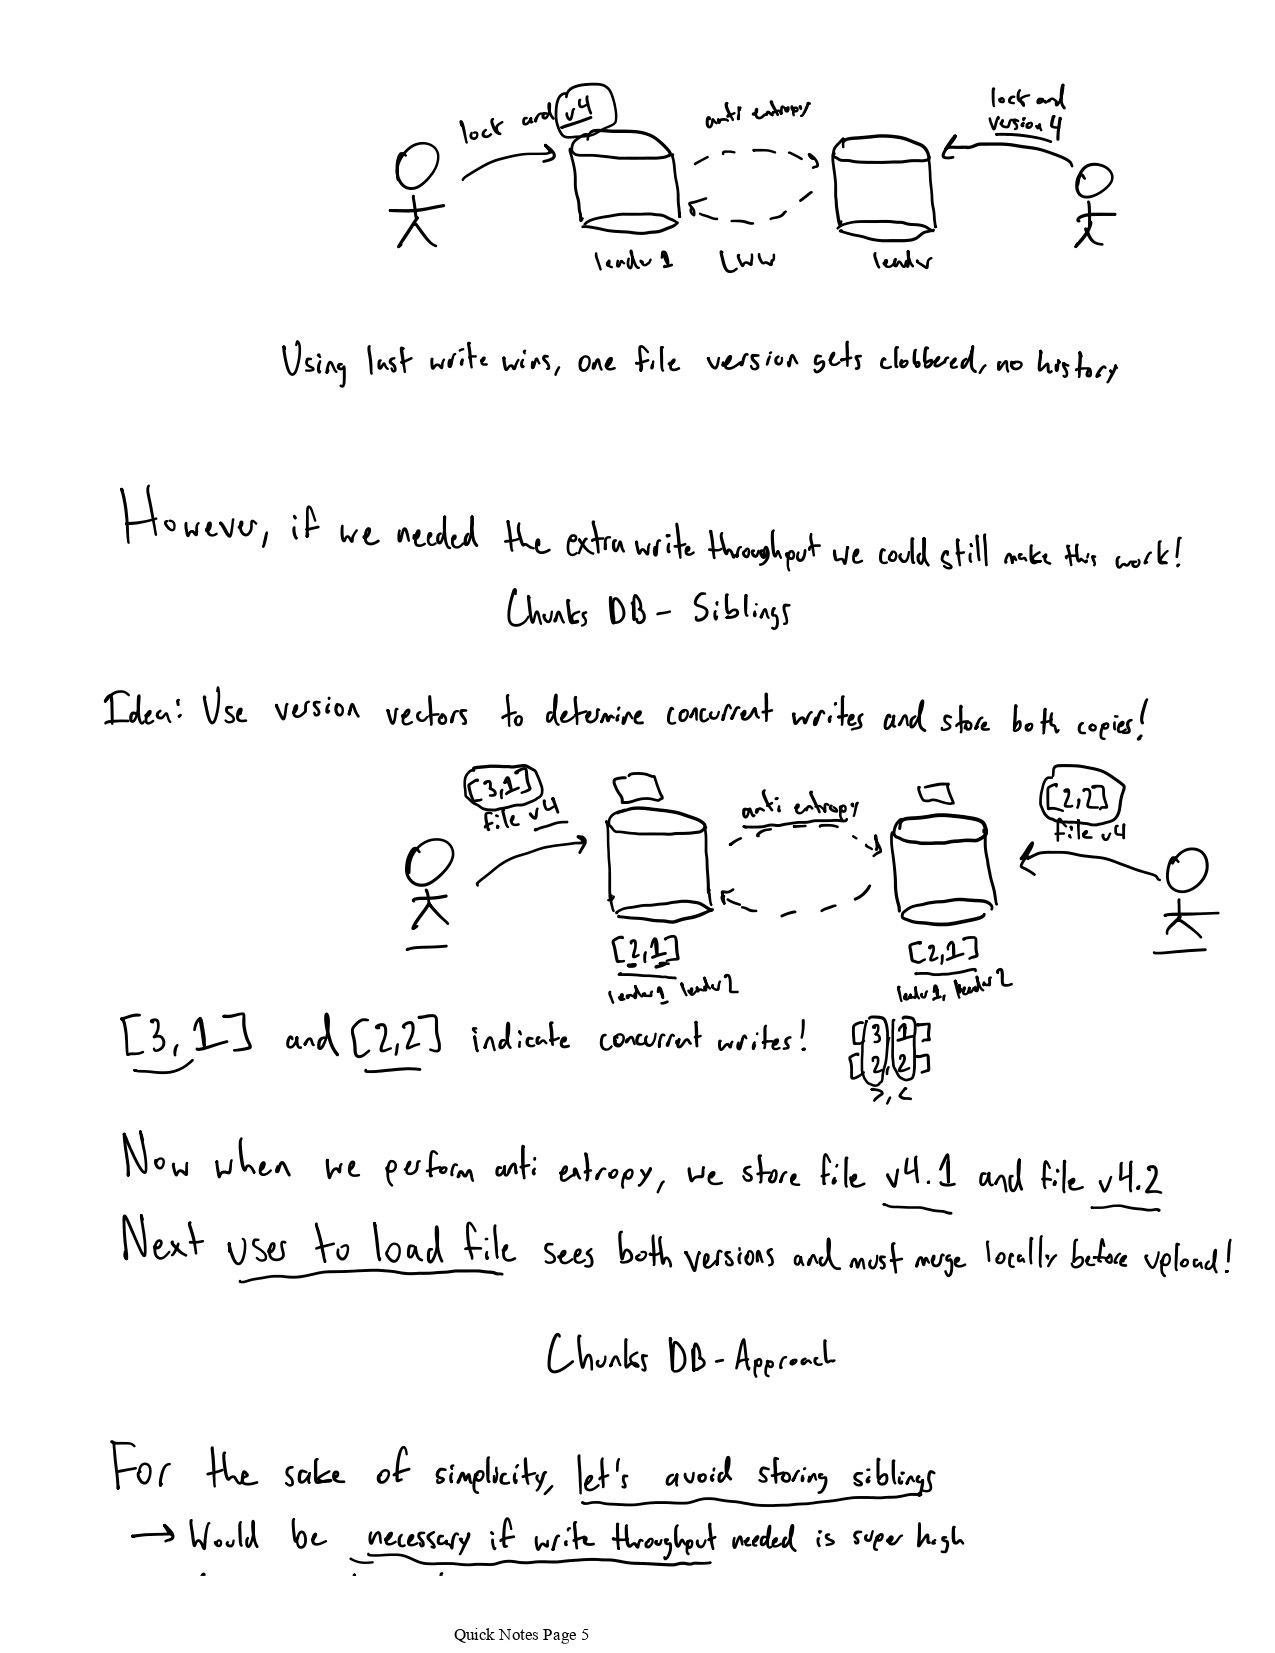 lock and v4
anti entropy
lock and
version 4
leader 1
LWW
leader
Using last write wins, one file version gets clobbered, no history
However, if we needed the extra write throughput we could still make this work!
Chunks DB - Siblings
Idea: Use version vectors to determine concurrent writes and store both copies!
[3,1]
file v4
anti entropy
[2,2]
file v4
[2,1]
leader 1 leader 2
[2,1]
leader 1, leader 2
[3,1] and [2,2] indicate concurrent writes!
[3,1]
[2,2]
>, <
Now when we perform anti entropy, we store file v4.1 and file v4.2
Next user to load file sees both versions and must merge locally before upload!
Chunks DB - Approach
For the sake of simplicity, let's avoid storing siblings
→ Would be necessary if write throughput needed is super high
Quick Notes Page 5